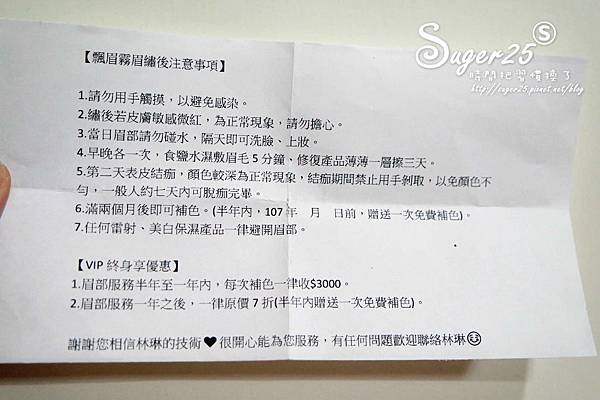 Suger25 S
時間把習慣換了
http://suger25.pixnet.net/blog
【飄眉霧眉繡後注意事項】
1.請勿用手觸摸，以避免感染。
2.繡後若皮膚敏感微紅，為正常現象，請勿擔心。
3.當日眉部請勿碰水，隔天即可洗臉、上妝。
4.早晚各一次，食鹽水濕敷眉毛5分鐘、修復產品薄薄一層擦三天。
5.第二天表皮結痂，顏色較深為正常現象，結痂期間禁止用手剝取，以免顏色不
勻，一般人約七天內可脫痂完畢。
6.滿兩個月後即可補色。(半年內，107年 月 日前，贈送一次免費補色)。
7.任何雷射、美白保濕產品一律避開眉部。
【VIP 終身享優惠】
1.眉部服務半年至一年內，每次補色一律收$3000。
2.眉部服務一年之後，一律原價7折(半年內贈送一次免費補色)。
謝謝您相信林琳的技術♥很開心能為您服務，有任何問題歡迎聯絡林琳☺